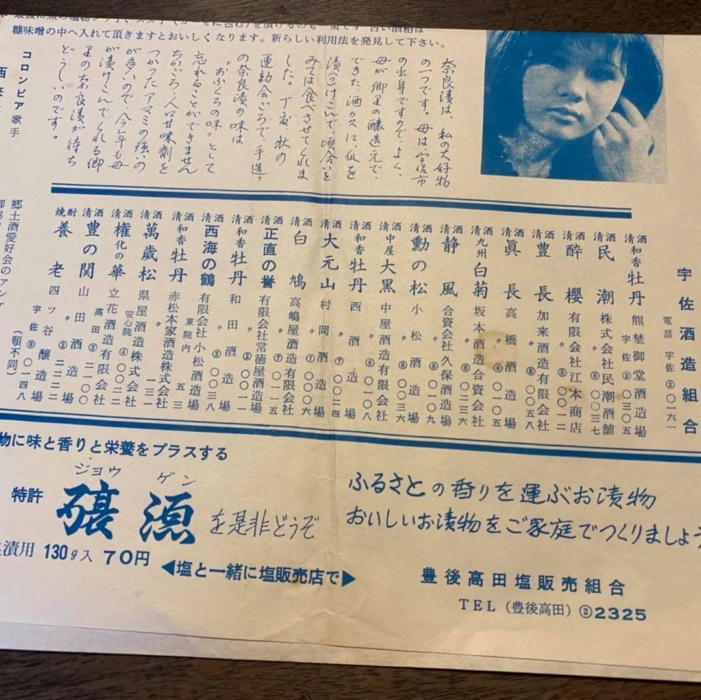 糠味噌の中へ入れて頂きますとおいしくなります。新らしい利用法を発見して下さい。
奈良漬は、私の大好物
の一つです。母は宇佐市
の出身ですので、よく、
母が郷里の醸造元で、
できた酒カスに、瓜を
漬けこんで、頃合いを
みては食べさせてくれま
した。丁度秋の
運動会ごろで、手造り
の奈良漬の味は
"おふくろの味"として
忘れることができません
ちかごろ人口甘味剤を
つかったアマミの強いの
が多いので、今年も母
が漬けこんでくれる郷
里の奈良漬が待ち
どうしいのです。
コロンビア歌手
宇佐酒造組合
電話 宇佐②〇一六一
清酒 和香牡丹 熊埜御堂酒造場 宇佐②〇三〇五
清酒 民潮 株式会社民潮酒舗 〃⑧〇〇三七
清酒 酔櫻 有限会社江本商店
清酒 豊長 加来酒造有限会社
清酒 眞長 高橋酒造場
清酒 九州白菊 坂本酒造合資会社
清酒 静風 合資会社久保酒造場
清酒 勳の松 小松酒造場
清酒 中屋大黒 中屋酒造有限会社
清酒 和香牡丹 西酒造場
清酒 大元山 村岡酒造場
清酒 白鳩 高嶋屋酒造有限会社
清酒 正直の誉 有限会社常徳屋酒造場
清酒 和香牡丹 和田酒造場
清酒 西海の鶴 有限会社小松酒造場
清酒 和香牡丹 赤松本家酒造株式会社
清酒 萬歳松 県屋酒造株式会社
清酒 権化の華 立花酒造有限会社
清酒 豊の関 山田酒造場
焼酎 養老 四ッ谷醸造場
(順不同)
郷土酒愛好会のアンケ
物に味と香りと栄養をプラスする
ジョウ ゲン
特許
源
を是非どうぞ
漬用 130g入 70円
◀塩と一緒に塩販売店で▶
ふるさとの香りを運ぶお漬物
おいしいお漬物をご家庭でつくりましょう
豊後高田塩販売組合
TEL(豊後高田)②2325